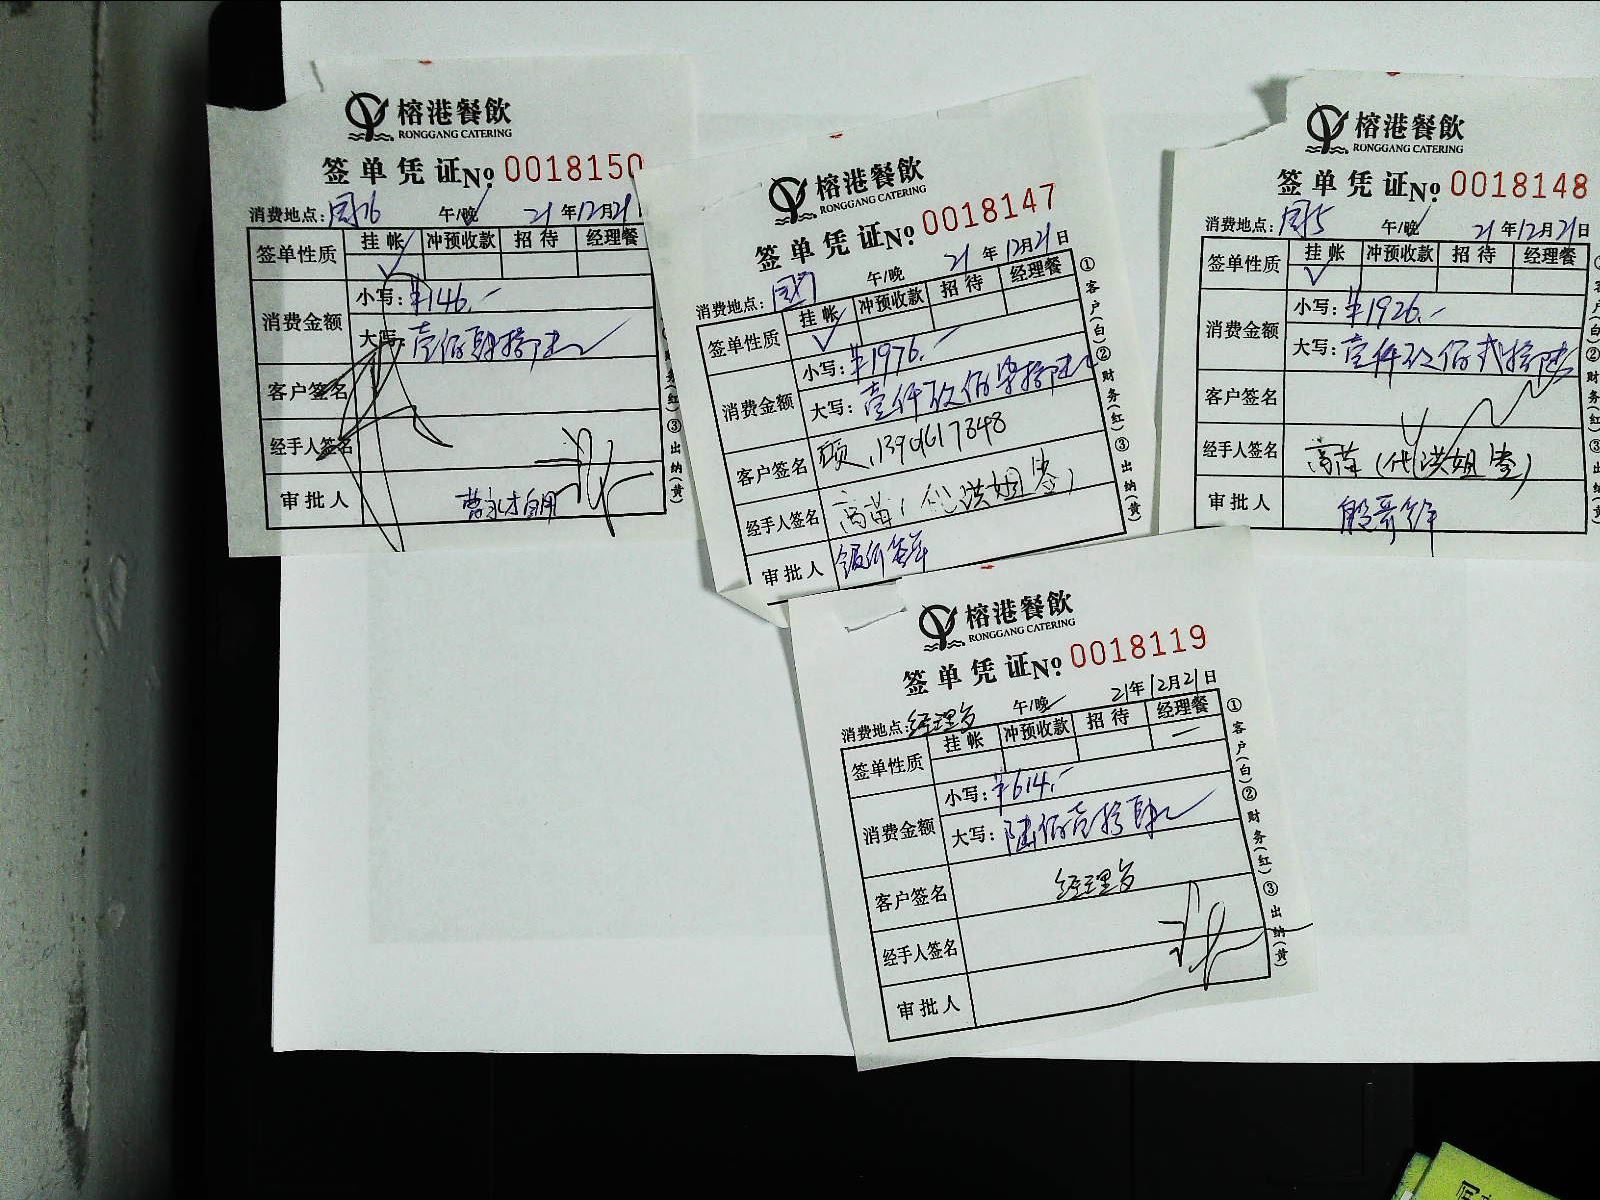 榕港餐飲
RONGGANG CATERING
签单凭证 No 0018150
消费地点: 午/晚 21年12月21日
签单性质 挂帐 冲预收款 招待 经理餐
消费金额
小写: ¥146.-
大写: 壹佰肆拾陆
客户签名
经手人签名
审批人
榕港餐飲
RONGGANG CATERING
签单凭证 No 0018147
消费地点: 午/晚 21年12月21日
签单性质 挂帐 冲预收款 招待 经理餐
消费金额
小写: ¥1976.-
大写: 壹仟玖佰柒拾陆
客户签名
经手人签名 高苗(代洪姐签)
审批人
①客户(白)②财务(红)③出纳(黄)
榕港餐飲
RONGGANG CATERING
签单凭证 No 0018148
消费地点: 午/晚 21年12月21日
签单性质 挂帐 冲预收款 招待 经理餐
消费金额
小写: ¥1926.-
大写: 壹仟玖佰贰拾陆
客户签名
经手人签名 高苗(代洪姐签)
审批人
榕港餐飲
RONGGANG CATERING
签单凭证 No 0018119
消费地点: 经理岁 午/晚 21年12月21日
签单性质 挂帐 冲预收款 招待 经理餐
消费金额
小写: ¥614.-
大写: 陆佰壹拾肆
客户签名 经理岁
经手人签名
审批人
①客户(白)②财务(红)③出纳(黄)